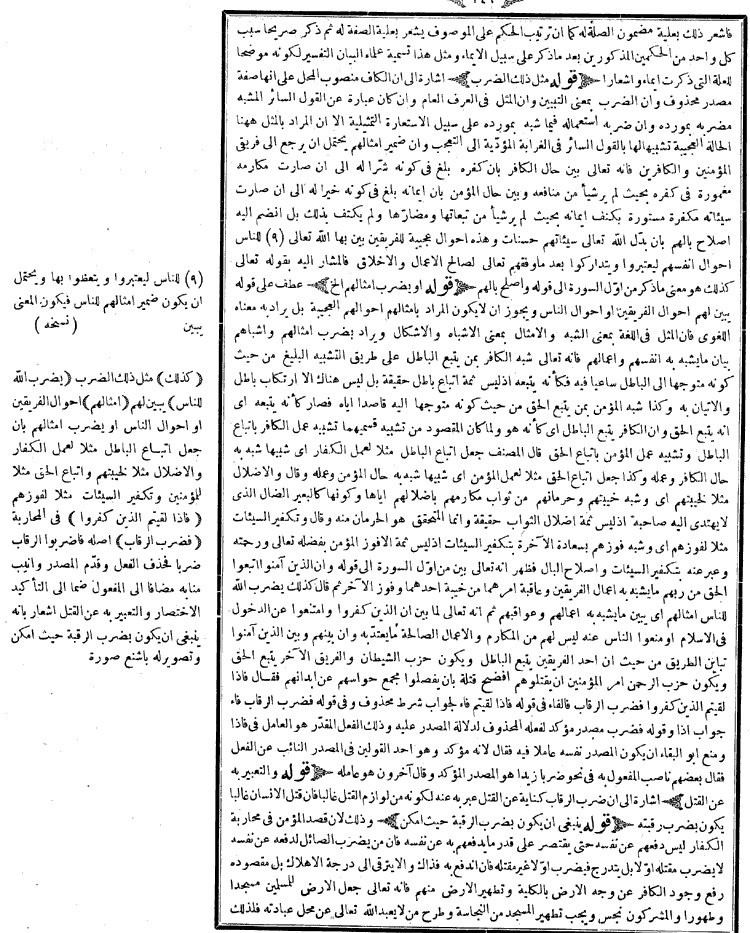 فاشعر ذلك بعلية مضمون الصلة له كما ان ترتيب الحكم على الموصوف يشعر بعلية الصفة له ثم ذكر صريحا سبب
كل واحد من الحكمين المذكورين بعد ماذكر على سبيل الايماء ومثل هذا تسمية علماء البيان التفسير لكونه موضحا
للعلة التى ذكرت ايماء واشعارا ﴿ قوله مثل ذلك الضرب ﴾ اشارة الى ان الكاف منصوب المحل على انها صفة
مصدر محذوف وان الضرب بمعنى التبيين وان المثل فى العرف العام وان كان عبارة عن القول السائر المشبه
مضربه بمورده وان ضربه استعماله فيما شبه بمورده على سبيل الاستعارة التمثيلية الا ان المراد بالمثل ههنا
الحالة العجيبة تشبيها لها بالقول السائر فى الغرابة المؤدّية الى التعجب وان ضمير امثالهم يحتمل ان يرجع الى فريقى
المؤمنين والكافرين فانه تعالى بين حال الكافر بان كفره بلغ فى كونه شرّا له الى ان صارت مكارمه
مغمورة فى كفره بحيث لم يرشيأ من منافعه وبين حال المؤمن بان ايمانه بلغ فى كونه خيرا له الى ان صارت
سيئاته مكفرة مستورة بكنف ايمانه بحيث لم يرشيأ من تبعاتها ومضارّها ولم يكتف بذلك بل انضم اليه
اصلاح بالهم بان بدّل الله تعالى سيئاتهم حسنات وهذه احوال عجيبة للفريقين بين بها الله تعالى (٩) للناس
احوال انفسهم ليعتبروا و يتداركوا بعد ماوفقهم تعالى لصالح الاعمال والاخلاق فالمشار اليه بقوله تعالى
كذلك هو معنى ماذكر من اول السورة الى قوله واصلح بالهم ﴿ قوله او يضرب امثالهم الخ ﴾ عطف على قوله
يبين لهم احوال الفريقين او احوال الناس ويجوز ان لايكون المراد بامثالهم احوالهم العجيبة بل يراد به معناه
اللغوى فان المثل فى اللغة بمعنى الشبه والامثال بمعنى الاشباه والاشكال ويراد بضرب امثالهم واشباهم
بيان مايشبه به انفسهم واعمالهم فانه تعالى شبه الكافر بمن يتبع الباطل على طريق التشبيه البليغ من حيث
كونه متوجها الى الباطل ساعيا فيه فكأنه يتبعه اذ ليس ثمة اتباع باطل حقيقة بل ليس هناك الا ارتكاب باطل
والاتيان به وكذا شبه المؤمن بمن يتبع الحق من حيث كونه متوجها اليه قاصدا اياه فصار كأنه يتبعه اى
انه يتبع الحق وان الكافر يتبع الباطل اى كأنه هو ولما كان المقصود من تشبيه قسميهما تشبه عمل الكافر باتباع
الباطل وتشبيه عمل المؤمن باتباع الحق قال المصنف جعل اتباع الباطل مثلا لعمل الكفار اى شبيها شبه به
حال الكافر وعمله وكذا جعل اتباع الحق مثلا لعمل المؤمن اى شبيها شبه به حال المؤمن وعمله وقال والاضلال
مثلا لخيبتهم اى وشبه خيبتهم وحرمانهم من ثواب مكارمهم باضلالهم اياها وكونها كالبعير الضال الذى
لايهتدى اليه صاحبه اذ ليس ثمة اضلال الثواب حقيقة وانما المتحقق هو الحرمان منه وقال وتكفير السيئات
مثلا لفوزهم اى وشبه فوزهم بسعادة الآخرة بتكفير السيئات اذ ليس ثمة الا فوز المؤمن بفضله تعالى ورحمته
وعبر عنه بتكفير السيئات واصلاح البال فظهر انه تعالى بين من اوّل السورة الى قوله وان الذين آمنوا اتبعوا
الحق من ربهم مايشبه به اعمال الفريقين وعاقبة امرهما من خيبة احدهما وفوز الآخر ثم قال كذلك يضرب الله
للناس امثالهم اى يبين مايشبه به اعمالهم وعواقبهم ثم انه تعالى لما بين ان الذين كفروا وامتنعوا عن الدخول
فى الاسلام او منعوا الناس عنه ليس لهم من المكارم والاعمال الصالحة مايعتدّ به وان بينهم وبين الذين آمنوا
تباين الطريق من حيث ان احد الفريقين يتبع الباطل ويكون حزب الشيطان والفريق الآخر يتبع الحق
ويكون حزب الرحمن امر المؤمنين ان يقتلوهم افضح قتلة بان يفصلوا مجمع حواسهم عن ابدانهم فقال فاذا
لقيتم الذين كفروا فضرب الرقاب فالفاء فى قوله فاذا لقيتم فاء لجواب شرط محذوف وفى قوله فضرب الرقاب فاء
جواب اذا وقوله فضرب مصدر مؤكد لفعله المحذوف لدلالة المصدر عليه وذلك الفعل المقدّر هو العامل فى فاذا
ومنع ابو البقاء ان يكون المصدر نفسه عاملا فيه فقال لانه مؤكد وهو احد القولين فى المصدر النائب عن الفعل
فقال بعضهم ناصب المفعول به فى نحو ضربا زيدا هو المصدر المؤكد وقال آخرون هو عامله ﴿ قوله والتعبير به
عن القتل ﴾ اشارة الى ان ضرب الرقاب كناية عن القتل عبر به عنه لكونه من لوازم القتل غالبا فان قتل الانسان غالبا
يكون بضرب رقبته ﴿ قوله ينبغى ان يكون بضرب الرقبة حيث امكن ﴾ وذلك لان قصد المؤمن فى محاربة
الكفار ليس دفعهم عن نفسه حتى يقتصر على قدر مايدفعهم به عن نفسه فان من يضرب الصائل لدفعه عن نفسه
لا يضرب مقتله اوّلا بل يتدرج فيضرب اوّلا غير مقتله فان اندفع به فذاك والا يترقى الى درجة الاهلاك بل مقصوده
رفع وجود الكافر عن وجه الارض بالكلية وتطهير الارض منهم فانه تعالى جعل الارض للمسلمين مسجدا
وطهورا والمشركون نجس ويجب تطهير المسجد من النجاسة وطرح من لايعبد الله تعالى عن محل عبادته فلذلك
(٩) للناس ليعتبروا و يتعظوا بها ويحتمل
ان يكون ضمير امثالهم للناس فيكون المعنى
يبين ( نسخه )
( كذلك ) مثل ذلك الضرب ( يضرب الله
للناس ) يبين لهم ( امثالهم ) احوال الفريقين
او احوال الناس او يضرب امثالهم بان
جعل اتباع الباطل مثلا لعمل الكفار
والاضلال مثلا لخيبتهم واتباع الحق مثلا
للمؤمنين وتكفير السيئات مثلا لفوزهم
( فاذا لقيتم الذين كفروا ) فى المحاربة
( فضرب الرقاب ) اصله فاضربوا الرقاب
ضربا فحذف الفعل وقدّم المصدر وانيب
منابه مضافا الى المفعول ضما الى التأكيد
الاختصار والتعبير به عن القتل اشعار بانه
ينبغى ان يكون بضرب الرقبة حيث امكن
وتصوير له باشنع صورة